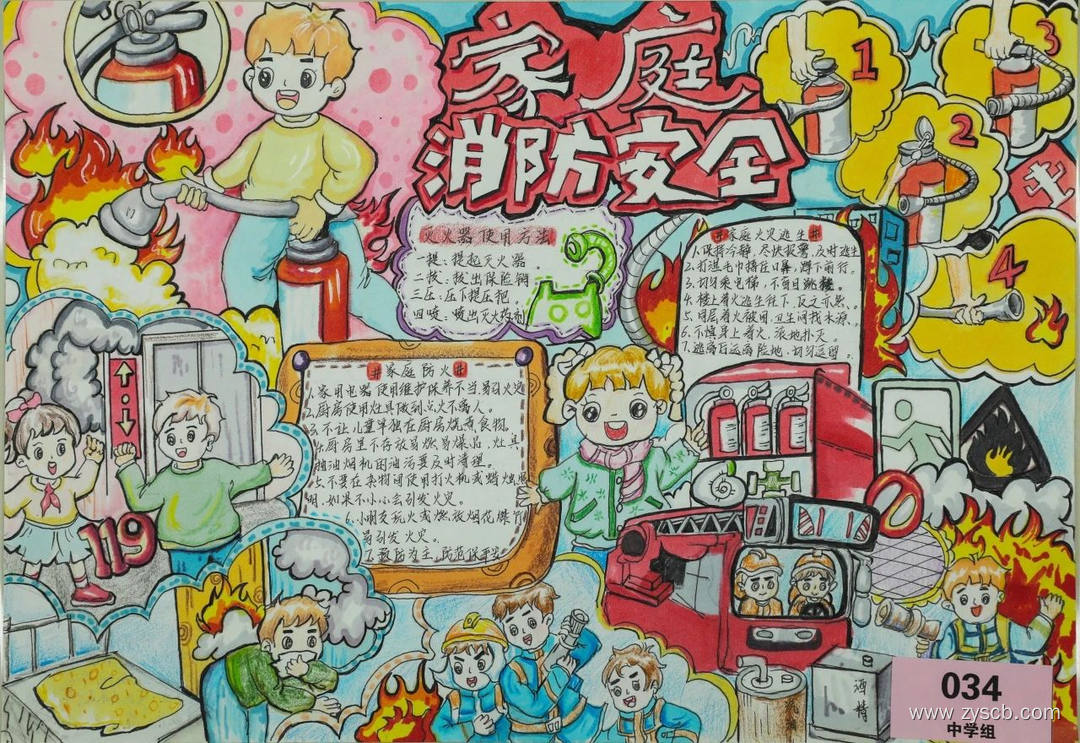 家庭
消防安全
1
2
3
4
灭火器使用方法
一提：提起灭火器
二拔：拔出保险销
三压：压下提压把
四喷：喷出灭火药剂
#家庭火灾逃生#
1.保持冷静，尽快报警，及时逃生
2.打湿毛巾捂住口鼻，蹲下前行。
3.切勿乘电梯，不盲目跳楼。
4.楼上着火逃生往下，反之亦然。
5.同层着火被困，卫生间找水源。
6.不慎身上着火，滚地扑灭。
7.逃离后远离险地，切勿逗留。
#家庭防火#
1.家用电器使用维护保养不当，易引火灾
2.厨房使用灶具做到点火不离人。
3.不让儿童单独在厨房烧煮食物。
4.厨房里不存放易燃易爆品，灶具
和油烟机的油污要及时清理。
5.不要在杂物间使用打火机或蜡烛照
明，如果不小心会引发火灾。
6.小朋友玩火或燃放烟花爆竹
易引发火灾。
7.预防为主，防范保平安
119
酒精
034
www.zyscb.com
中学组